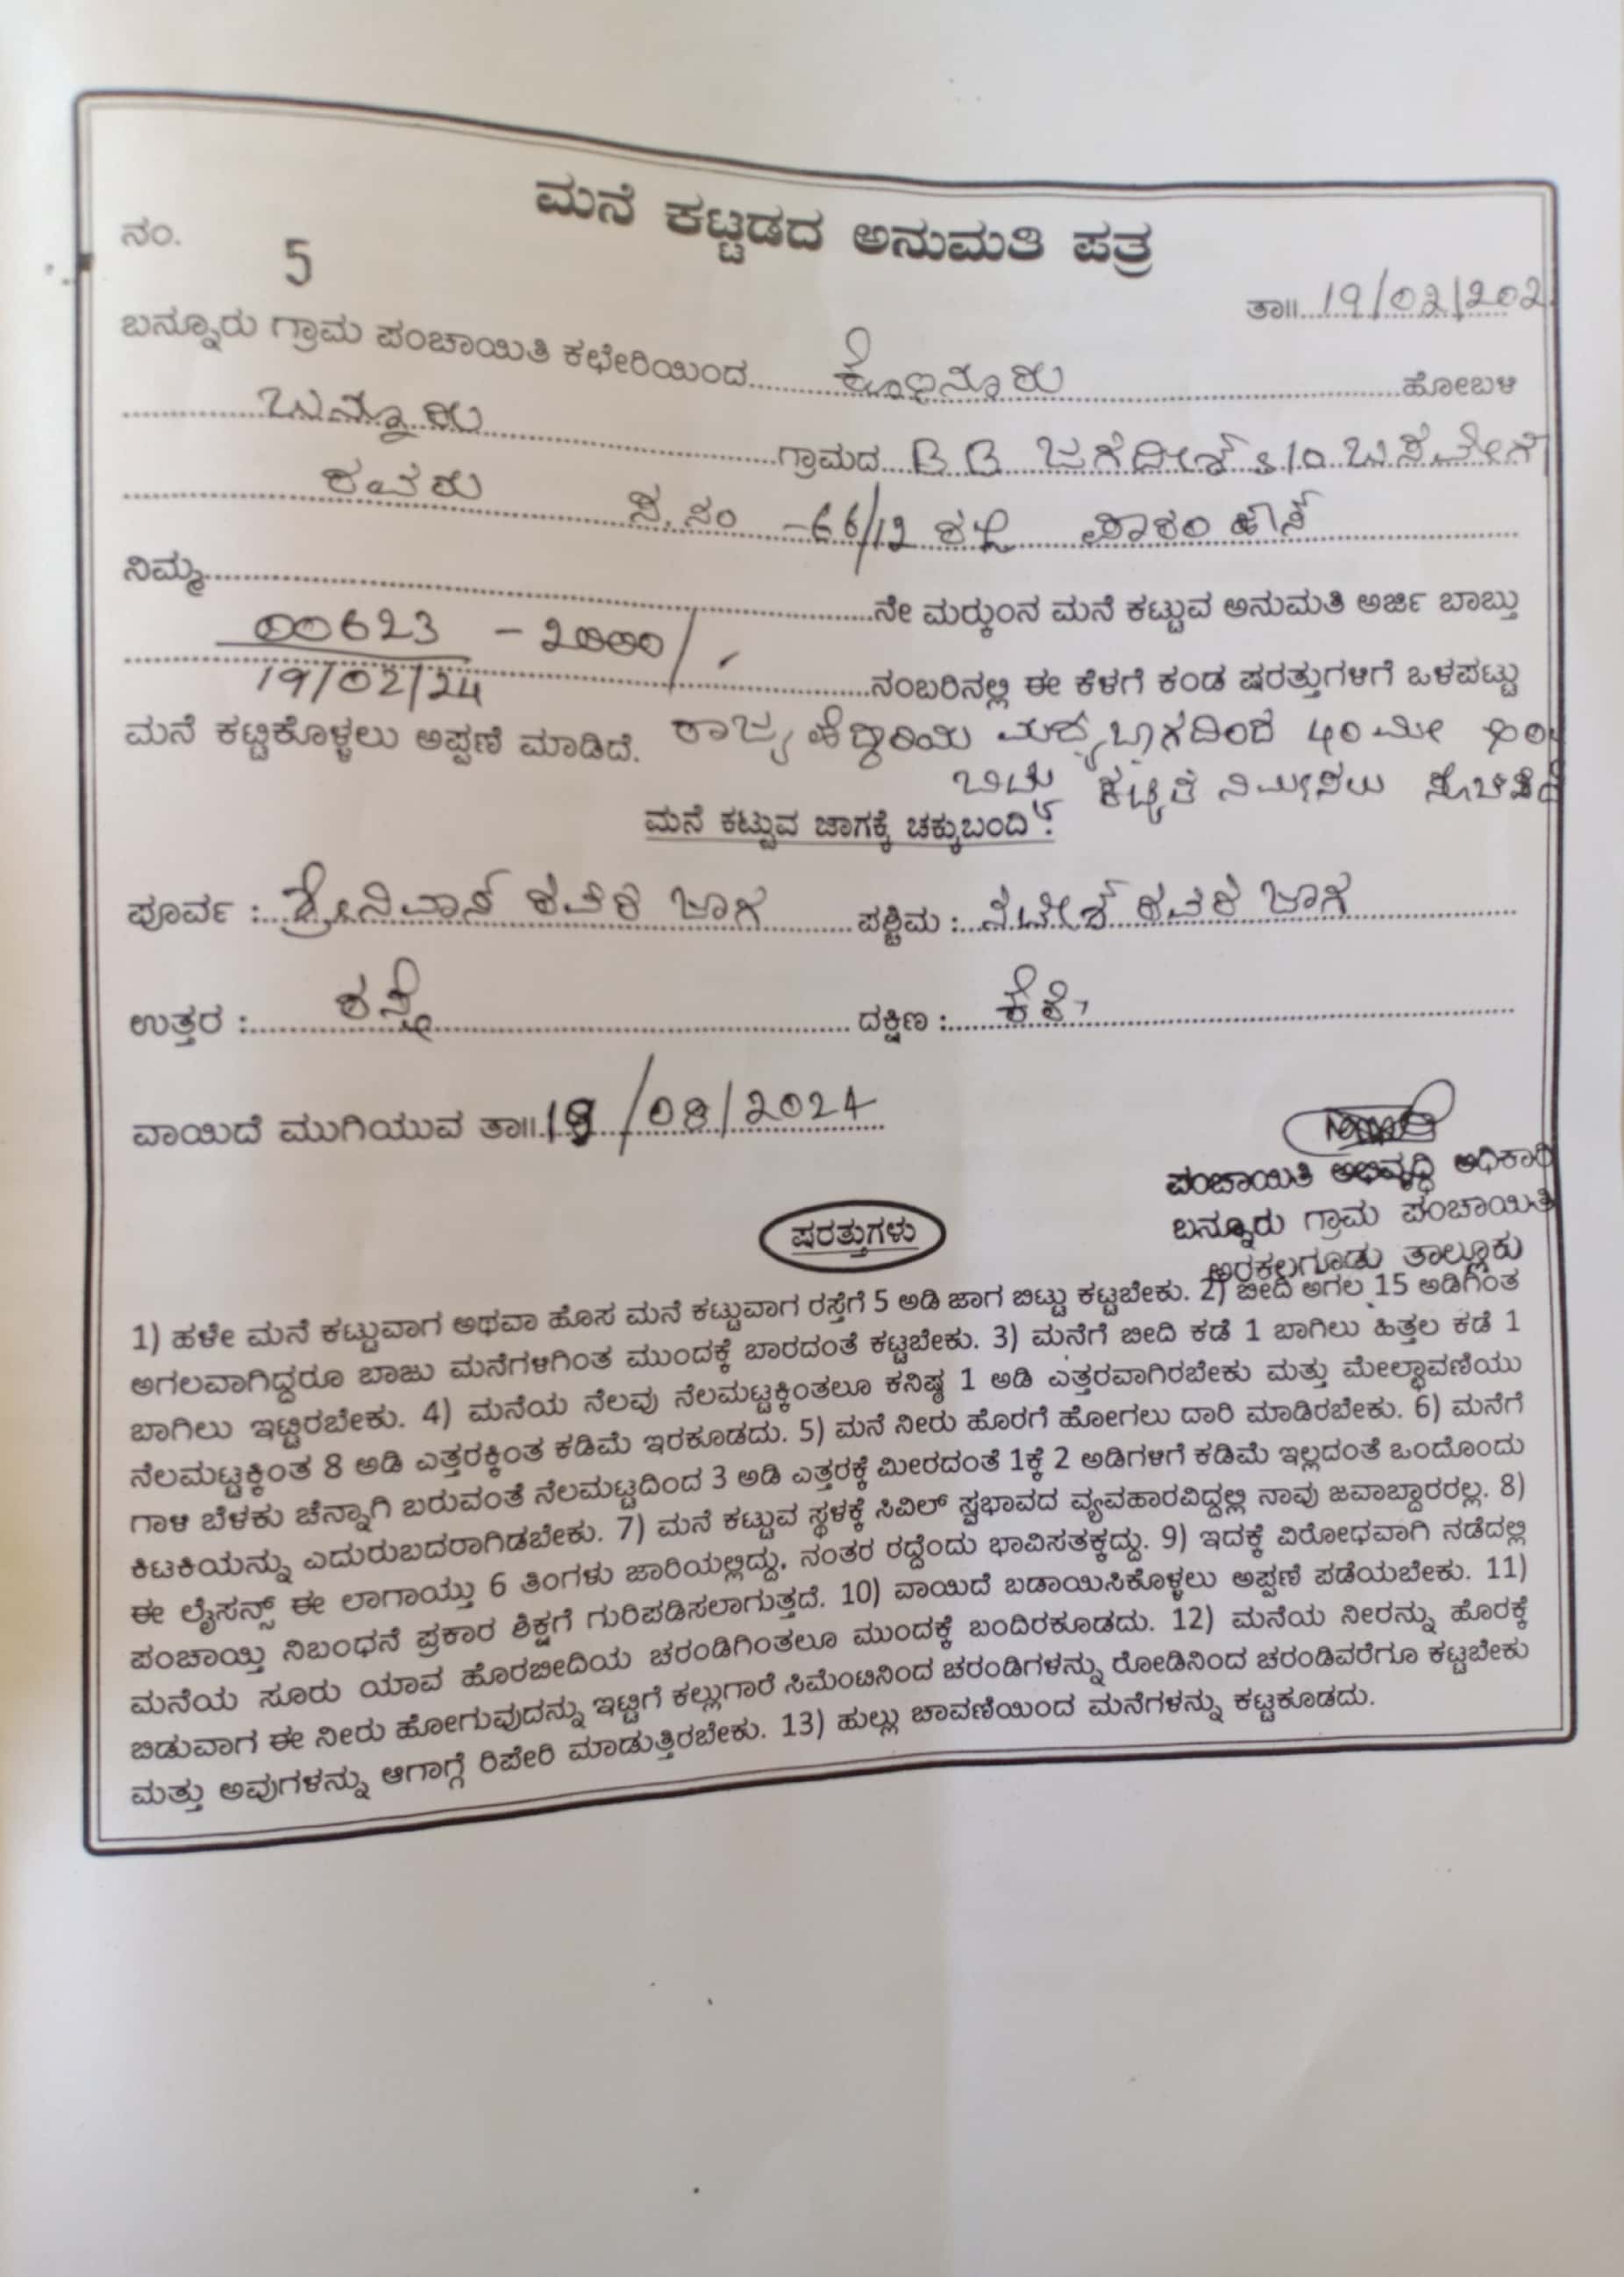 ಮನೆ ಕಟ್ಟಡದ ಅನುಮತಿ ಪತ್ರ
ನಂ. 5
ತಾ॥ 19/02/202
ಬನ್ನೂರು ಗ್ರಾಮ ಪಂಚಾಯಿತಿ ಕಛೇರಿಯಿಂದ ಕೊಣನೂರು ಹೋಬಳಿ
ಬನ್ನೂರು ಗ್ರಾಮದ B B ಜಗದೀಶ್ s/o ಬಸವೇಗೌ
ರವರು ಸ.ನಂ -66/12 ರಲ್ಲಿ ಫಾರಂ ಹೌಸ್
ನಿಮ್ಮ ನೇ ಮರ‍್ಕುಂನ ಮನೆ ಕಟ್ಟುವ ಅನುಮತಿ ಅರ್ಜಿ ಬಾಬ್ತು
00623 - 2000/
19/02/24 ನಂಬರಿನಲ್ಲಿ ಈ ಕೆಳಗೆ ಕಂಡ ಷರತ್ತುಗಳಿಗೆ ಒಳಪಟ್ಟು
ಮನೆ ಕಟ್ಟಿಕೊಳ್ಳಲು ಅಪ್ಪಣೆ ಮಾಡಿದೆ. ರಾಜ್ಯ ಹೆದ್ದಾರಿಯ ಮಧ್ಯಭಾಗದಿಂದ 40 ಮೀ
ಬಿಟ್ಟು ಕಟ್ಟಡ ನಿರ್ಮಿಸಲು ಸೂಚಿಸಿದೆ
ಮನೆ ಕಟ್ಟುವ ಜಾಗಕ್ಕೆ ಚಕ್ಕುಬಂದಿ :
ಪೂರ್ವ : ಶ್ರೀನಿವಾಸ್ ರವರ ಜಾಗ ಪಶ್ಚಿಮ : ನಟೇಶ್ ರವರ ಜಾಗ
ಉತ್ತರ : ರಸ್ತೆ ದಕ್ಷಿಣ : ಕೆರೆ
ವಾಯಿದೆ ಮುಗಿಯುವ ತಾ॥ 18/08/2024
ಪಂಚಾಯಿತಿ ಅಭಿವೃದ್ಧಿ ಅಧಿಕಾರಿ
ಬನ್ನೂರು ಗ್ರಾಮ ಪಂಚಾಯಿತಿ
ಅರಕಲಗೂಡು ತಾಲ್ಲೂಕು
ಷರತ್ತುಗಳು
1) ಹಳೇ ಮನೆ ಕಟ್ಟುವಾಗ ಅಥವಾ ಹೊಸ ಮನೆ ಕಟ್ಟುವಾಗ ರಸ್ತೆಗೆ 5 ಅಡಿ ಜಾಗ ಬಿಟ್ಟು ಕಟ್ಟಬೇಕು. 2) ಬೀದಿ ಅಗಲ 15 ಅಡಿಗಿಂತ
ಅಗಲವಾಗಿದ್ದರೂ ಬಾಜು ಮನೆಗಳಿಗಿಂತ ಮುಂದಕ್ಕೆ ಬಾರದಂತೆ ಕಟ್ಟಬೇಕು. 3) ಮನೆಗೆ ಬೀದಿ ಕಡೆ 1 ಬಾಗಿಲು ಹಿತ್ತಲ ಕಡೆ 1
ಬಾಗಿಲು ಇಟ್ಟಿರಬೇಕು. 4) ಮನೆಯ ನೆಲವು ನೆಲಮಟ್ಟಕ್ಕಿಂತಲೂ ಕನಿಷ್ಠ 1 ಅಡಿ ಎತ್ತರವಾಗಿರಬೇಕು ಮತ್ತು ಮೇಲ್ಛಾವಣಿಯು
ನೆಲಮಟ್ಟಕ್ಕಿಂತ 8 ಅಡಿ ಎತ್ತರಕ್ಕಿಂತ ಕಡಿಮೆ ಇರಕೂಡದು. 5) ಮನೆ ನೀರು ಹೊರಗೆ ಹೋಗಲು ದಾರಿ ಮಾಡಿರಬೇಕು. 6) ಮನೆಗೆ
ಗಾಳಿ ಬೆಳಕು ಚೆನ್ನಾಗಿ ಬರುವಂತೆ ನೆಲಮಟ್ಟದಿಂದ 3 ಅಡಿ ಎತ್ತರಕ್ಕೆ ಮೀರದಂತೆ 1ಕ್ಕೆ 2 ಅಡಿಗಳಿಗೆ ಕಡಿಮೆ ಇಲ್ಲದಂತೆ ಒಂದೊಂದು
ಕಿಟಕಿಯನ್ನು ಎದುರುಬದರಾಗಿಡಬೇಕು. 7) ಮನೆ ಕಟ್ಟುವ ಸ್ಥಳಕ್ಕೆ ಸಿವಿಲ್ ಸ್ವಭಾವದ ವ್ಯವಹಾರವಿದ್ದಲ್ಲಿ ನಾವು ಜವಾಬ್ದಾರರಲ್ಲ. 8)
ಈ ಲೈಸನ್ಸ್ ಈ ಲಾಗಾಯ್ತು 6 ತಿಂಗಳು ಜಾರಿಯಲ್ಲಿದ್ದು, ನಂತರ ರದ್ದೆಂದು ಭಾವಿಸತಕ್ಕದ್ದು. 9) ಇದಕ್ಕೆ ವಿರೋಧವಾಗಿ ನಡೆದಲ್ಲಿ
ಪಂಚಾಯ್ತಿ ನಿಬಂಧನೆ ಪ್ರಕಾರ ಶಿಕ್ಷಗೆ ಗುರಿಪಡಿಸಲಾಗುತ್ತದೆ. 10) ವಾಯಿದೆ ಬಡಾಯಿಸಿಕೊಳ್ಳಲು ಅಪ್ಪಣೆ ಪಡೆಯಬೇಕು. 11)
ಮನೆಯ ಸೂರು ಯಾವ ಹೊರಬೀದಿಯ ಚರಂಡಿಗಿಂತಲೂ ಮುಂದಕ್ಕೆ ಬಂದಿರಕೂಡದು. 12) ಮನೆಯ ನೀರನ್ನು ಹೊರಕ್ಕೆ
ಬಿಡುವಾಗ ಈ ನೀರು ಹೋಗುವುದನ್ನು ಇಟ್ಟಿಗೆ ಕಲ್ಲುಗಾರೆ ಸಿಮೆಂಟಿನಿಂದ ಚರಂಡಿಗಳನ್ನು ರೋಡಿನಿಂದ ಚರಂಡಿವರೆಗೂ ಕಟ್ಟಬೇಕು
ಮತ್ತು ಅವುಗಳನ್ನು ಆಗಾಗ್ಗೆ ರಿಪೇರಿ ಮಾಡುತ್ತಿರಬೇಕು. 13) ಹುಲ್ಲು ಚಾವಣಿಯಿಂದ ಮನೆಗಳನ್ನು ಕಟ್ಟಕೂಡದು.